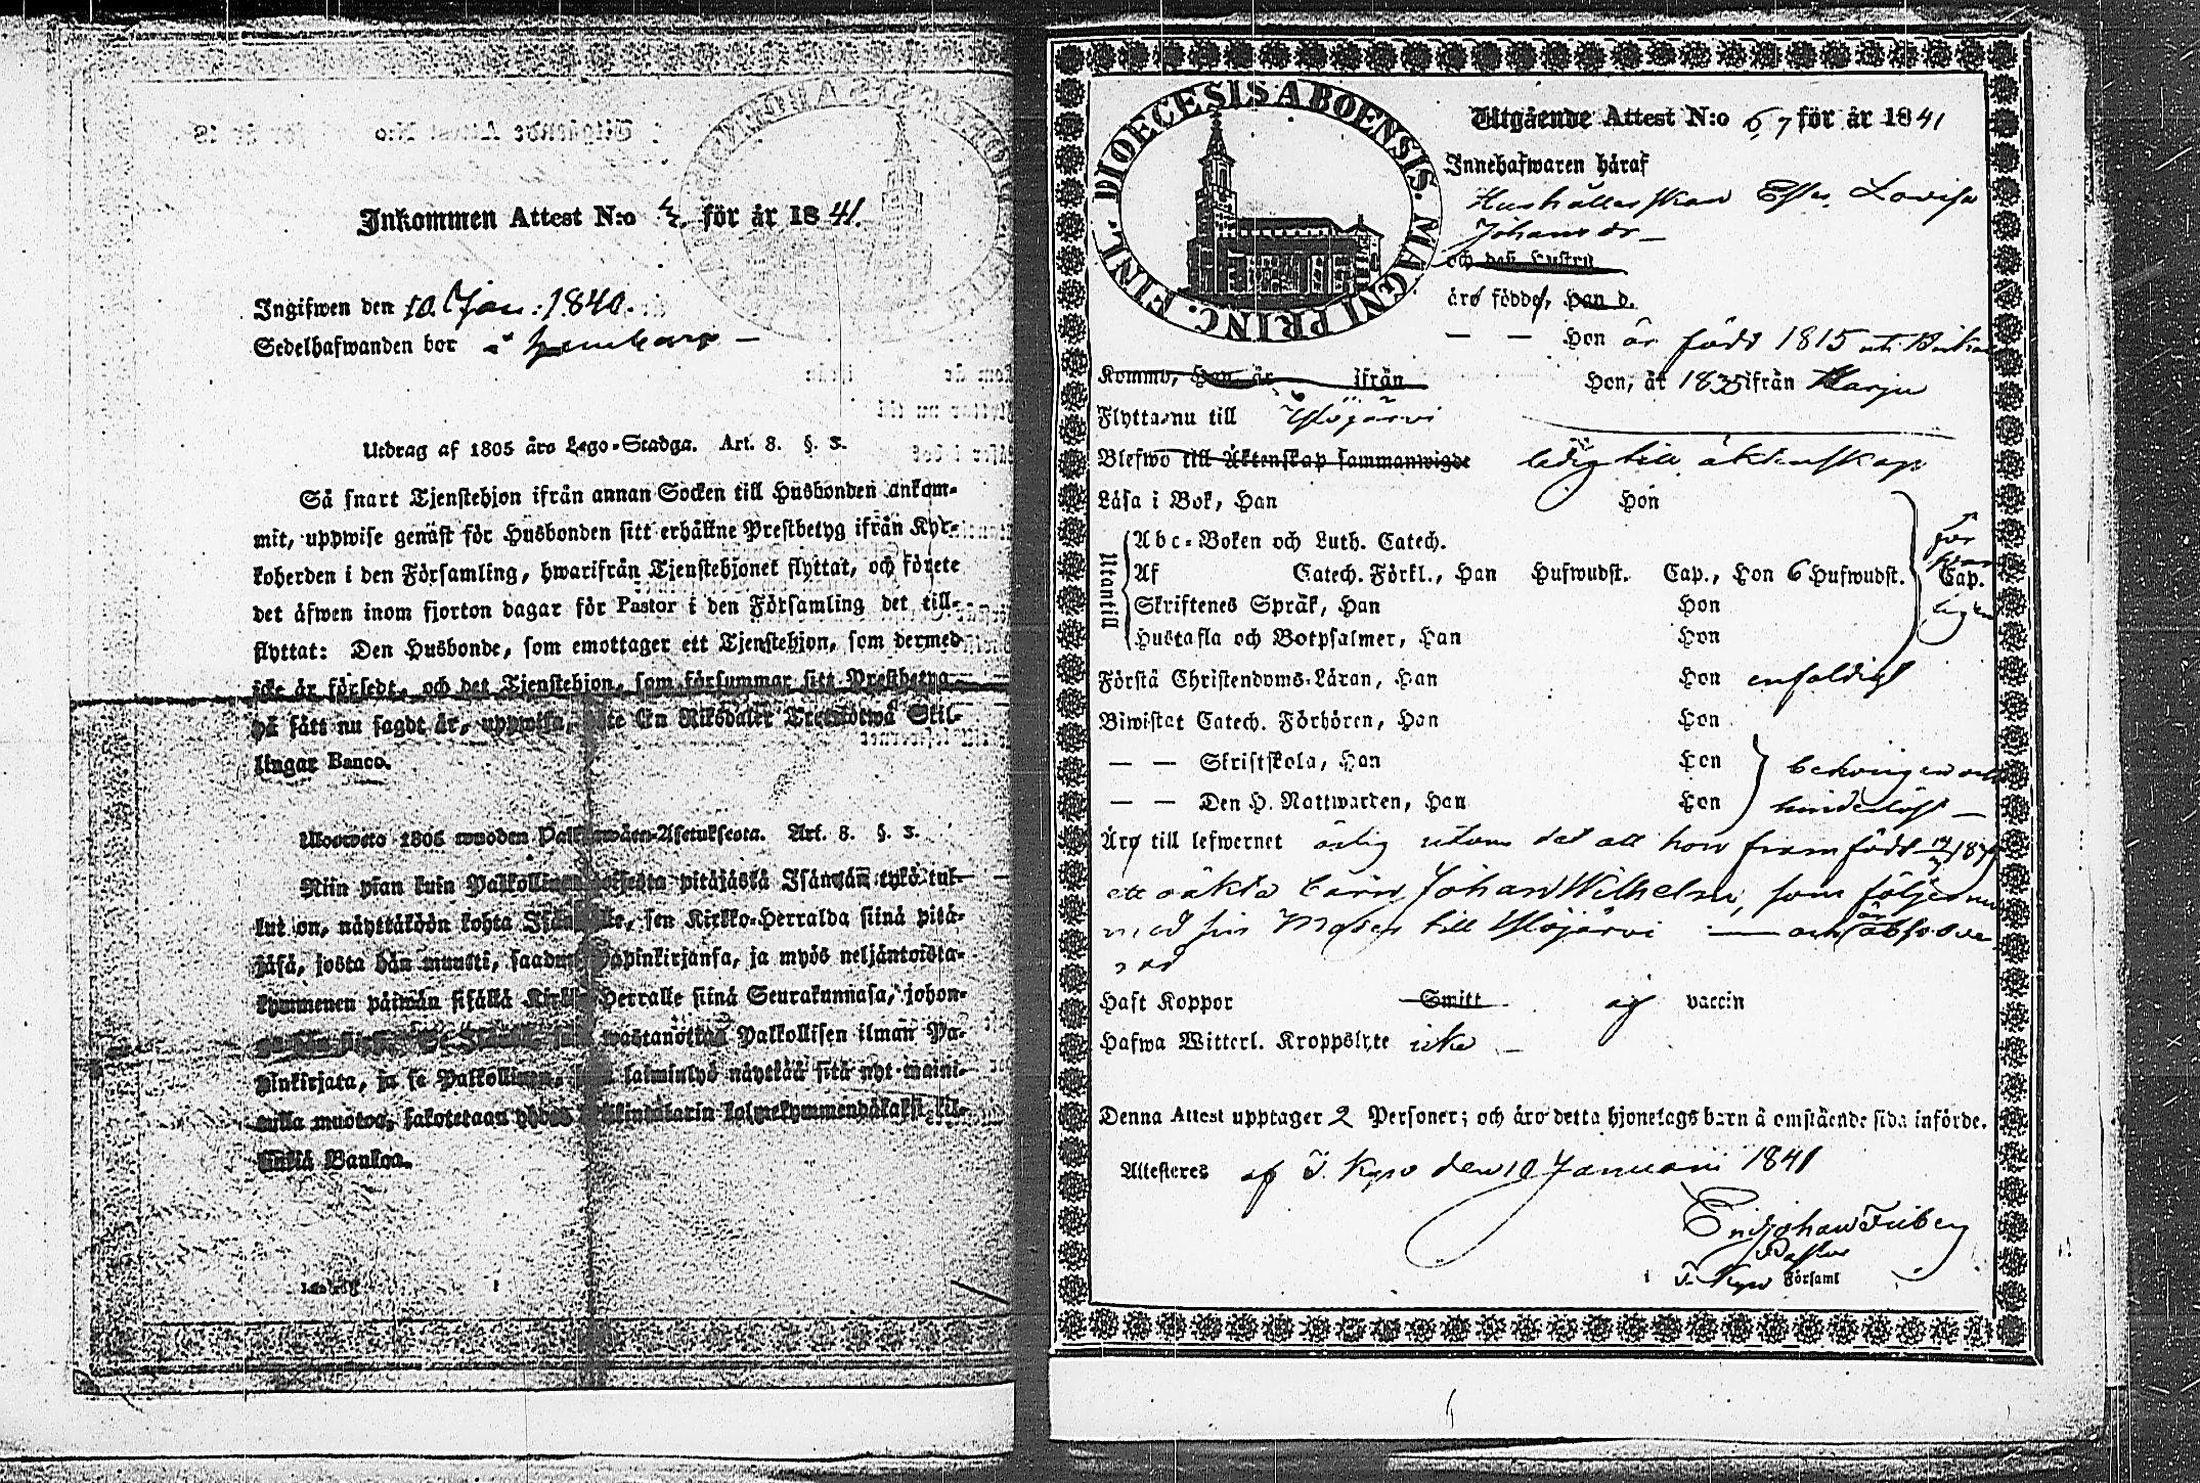 Inkommen Attest N:o för år 1841.
Ingifwen den 10. Jan: 1840.
Sedelhafwanden bor i
Utdrag af 1805 års Lego-Stadga. Art. 8. §. 3.
Så snart Tjenstehjon ifrån annan Socken till Husbonden ankom-
mit, uppwise genast för Husbonden sitt erhållne Prestbetyg ifrån Kyr-
koherden i den Församling, hwarifrån Tjenstehjonet flyttat, och förete
det äfwen inom fjorton dagar för Pastor i den Församling det till-
flyttat: Den Husbonde, som emottager ett Tjenstehjon, som dermed
icke är försedt, och det Tjenstehjon, som försummar sitt Prestbetyg
på sätt nu sagdt är, uppwisa, En Riksdaler Trettiotwå Skil-
lingar Banco.
Ulosweto 1805 wuoden Asetuksesta. Art. 8. §. 3.
Niin pian kuin pitäjästä Isännän tykö tul-
lut on, näyttäköön kohta sen Kirkko-Herralda siinä pitä-
jäsä, josta hän muutti, saadun Papinkirjansa, ja myös neljäntoista-
kymmenen päiwän sisällä Kirkko-Herralle siinä Seurakunnasa, johon-
wastanottaa Palkollisen ilman Pa-
pinkirjata, ja se Palkollinen, laiminlyö näyttää sitä nyt maini-
tulla muotoa, sakotetaan yhden Riksintalarin kolmekymmentäkaksi kil-
linkiä Bankoa.
FINL. DIOECESIS ABOENSIS. MAGNI PRINC.
Utgående Attest N:o 67 för år 1841
Innehafwaren häraf
Hushållerskan Lovisa
Johansdr
och deß hustru
äro födde, Han d.
— — Hon är född 1815 uti
Kommo, Han år ifrån Hon, år 1835 ifrån Karju
Flytta nu till Ylöjärvi
Blefwo till Äktenskap sammanwigde ledig till äktenskap
Läsa i Bok, Han Hon
Utantill
Abc-Boken och Luth. Catech.
Af Catech. Förkl., Han Hufwudst. Cap., Hon 6 Hufwudst. Cap.
Skriftenes Språk, Han Hon
Hustafla och Botpsalmer, Han Hon
Förstå Christendoms-Läran, Han Hon enfaldigt
Biwistat Catech. Förhören, Han Hon
— — Skriftskola, Han Hon
— — Den H. Nattwarden, Han Hon hinderlöst —
Äro till lefwernet ärlig utom det att hon framfödt
ett oäkta barn Johan Wilhelm, som följer nu
med sin Moder till Ylöjärvi — och är absolve-
rad
Haft Koppor Smitt ej vaccin
Hafwa Witterl. Kroppslyte icke —
Denna Attest upptager 2 Personer; och äro detta hjonelags barn å omstående sida införde.
Attesteres af T. Kyro den 10 Januarii 1841
Johan Friberg
Pastor
T. Kyro Församl